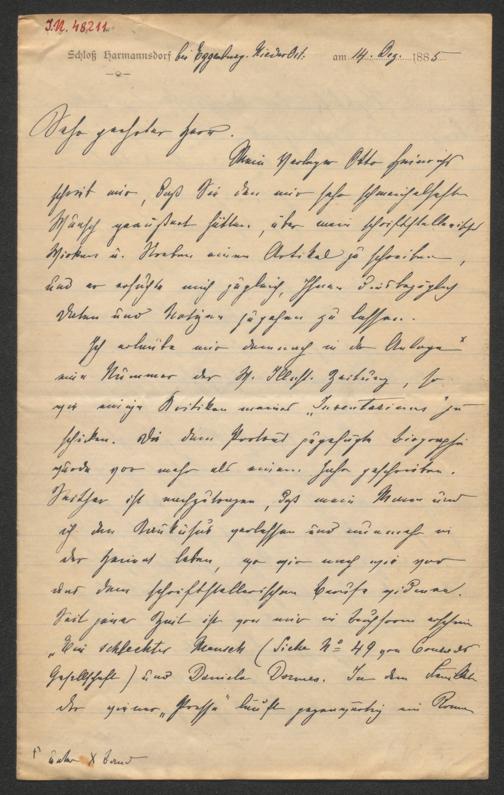 J.N. 48,211
Schloß Harmannsdorf bei Eggenburg. Nieder Öst. am 14. Dez. 1885
Sehr geehrter Herr.
Mein Verleger Otto Heinrichs
schreibt mir, daß Sie den mir sehr schmeichelhaften
Wunsch geäußert hätten, über mein schriftstellerisches
Wirken u. Streben einen Artikel zu schreiben,
und er ersuchte mich zugleich, Ihnen diesbezüglich
Daten und Notizen zugehen zu lassen.
Ich erlaube mir demnach in der Anlage x
eine Nummer der W. Illust. Zeitung, so
wie einige Kritiken meines „Inventariums" zu
schicken. Die dem Porträt zugefügte Biographie
wurde vor mehr als einem Jahr geschrieben.
Seither ist nachzutragen, daß mein Mann und
ich den Kaukasus verlassen und nunmehr in
der Heimat leben, wo wir nach wie vor
uns dem schriftstellerischen Berufe widmen.
Seit jener Zeit ist von mir in Buchform erschienen
„Ein schlechter Mensch (Siehe No 49 von Conrads
Gesellschaft) und Daniela Dormes. In dem Feuilleton
der wiener „Presse" läuft gegenwärtig ein Roman
unter X band